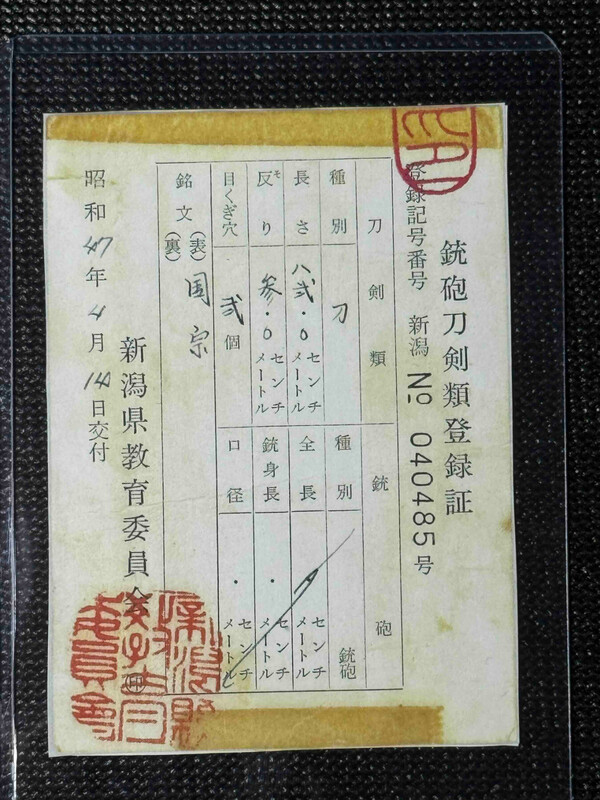 銃砲刀剣類登録証
登録記号番号 新潟 № 040485 号
刀剣類
種別 刀
長さ 八弐.0 センチメートル
反り そ 参.0 センチメートル
目くぎ穴 弐個
銘文 (表) 国宗
(裏)
銃砲
種別 銃砲
全長 センチメートル
銃身長 ・ センチメートル
口径 ・ センチメートル
昭和47年4月14日交付
新潟県教育委員会 印
新潟県教育委員會